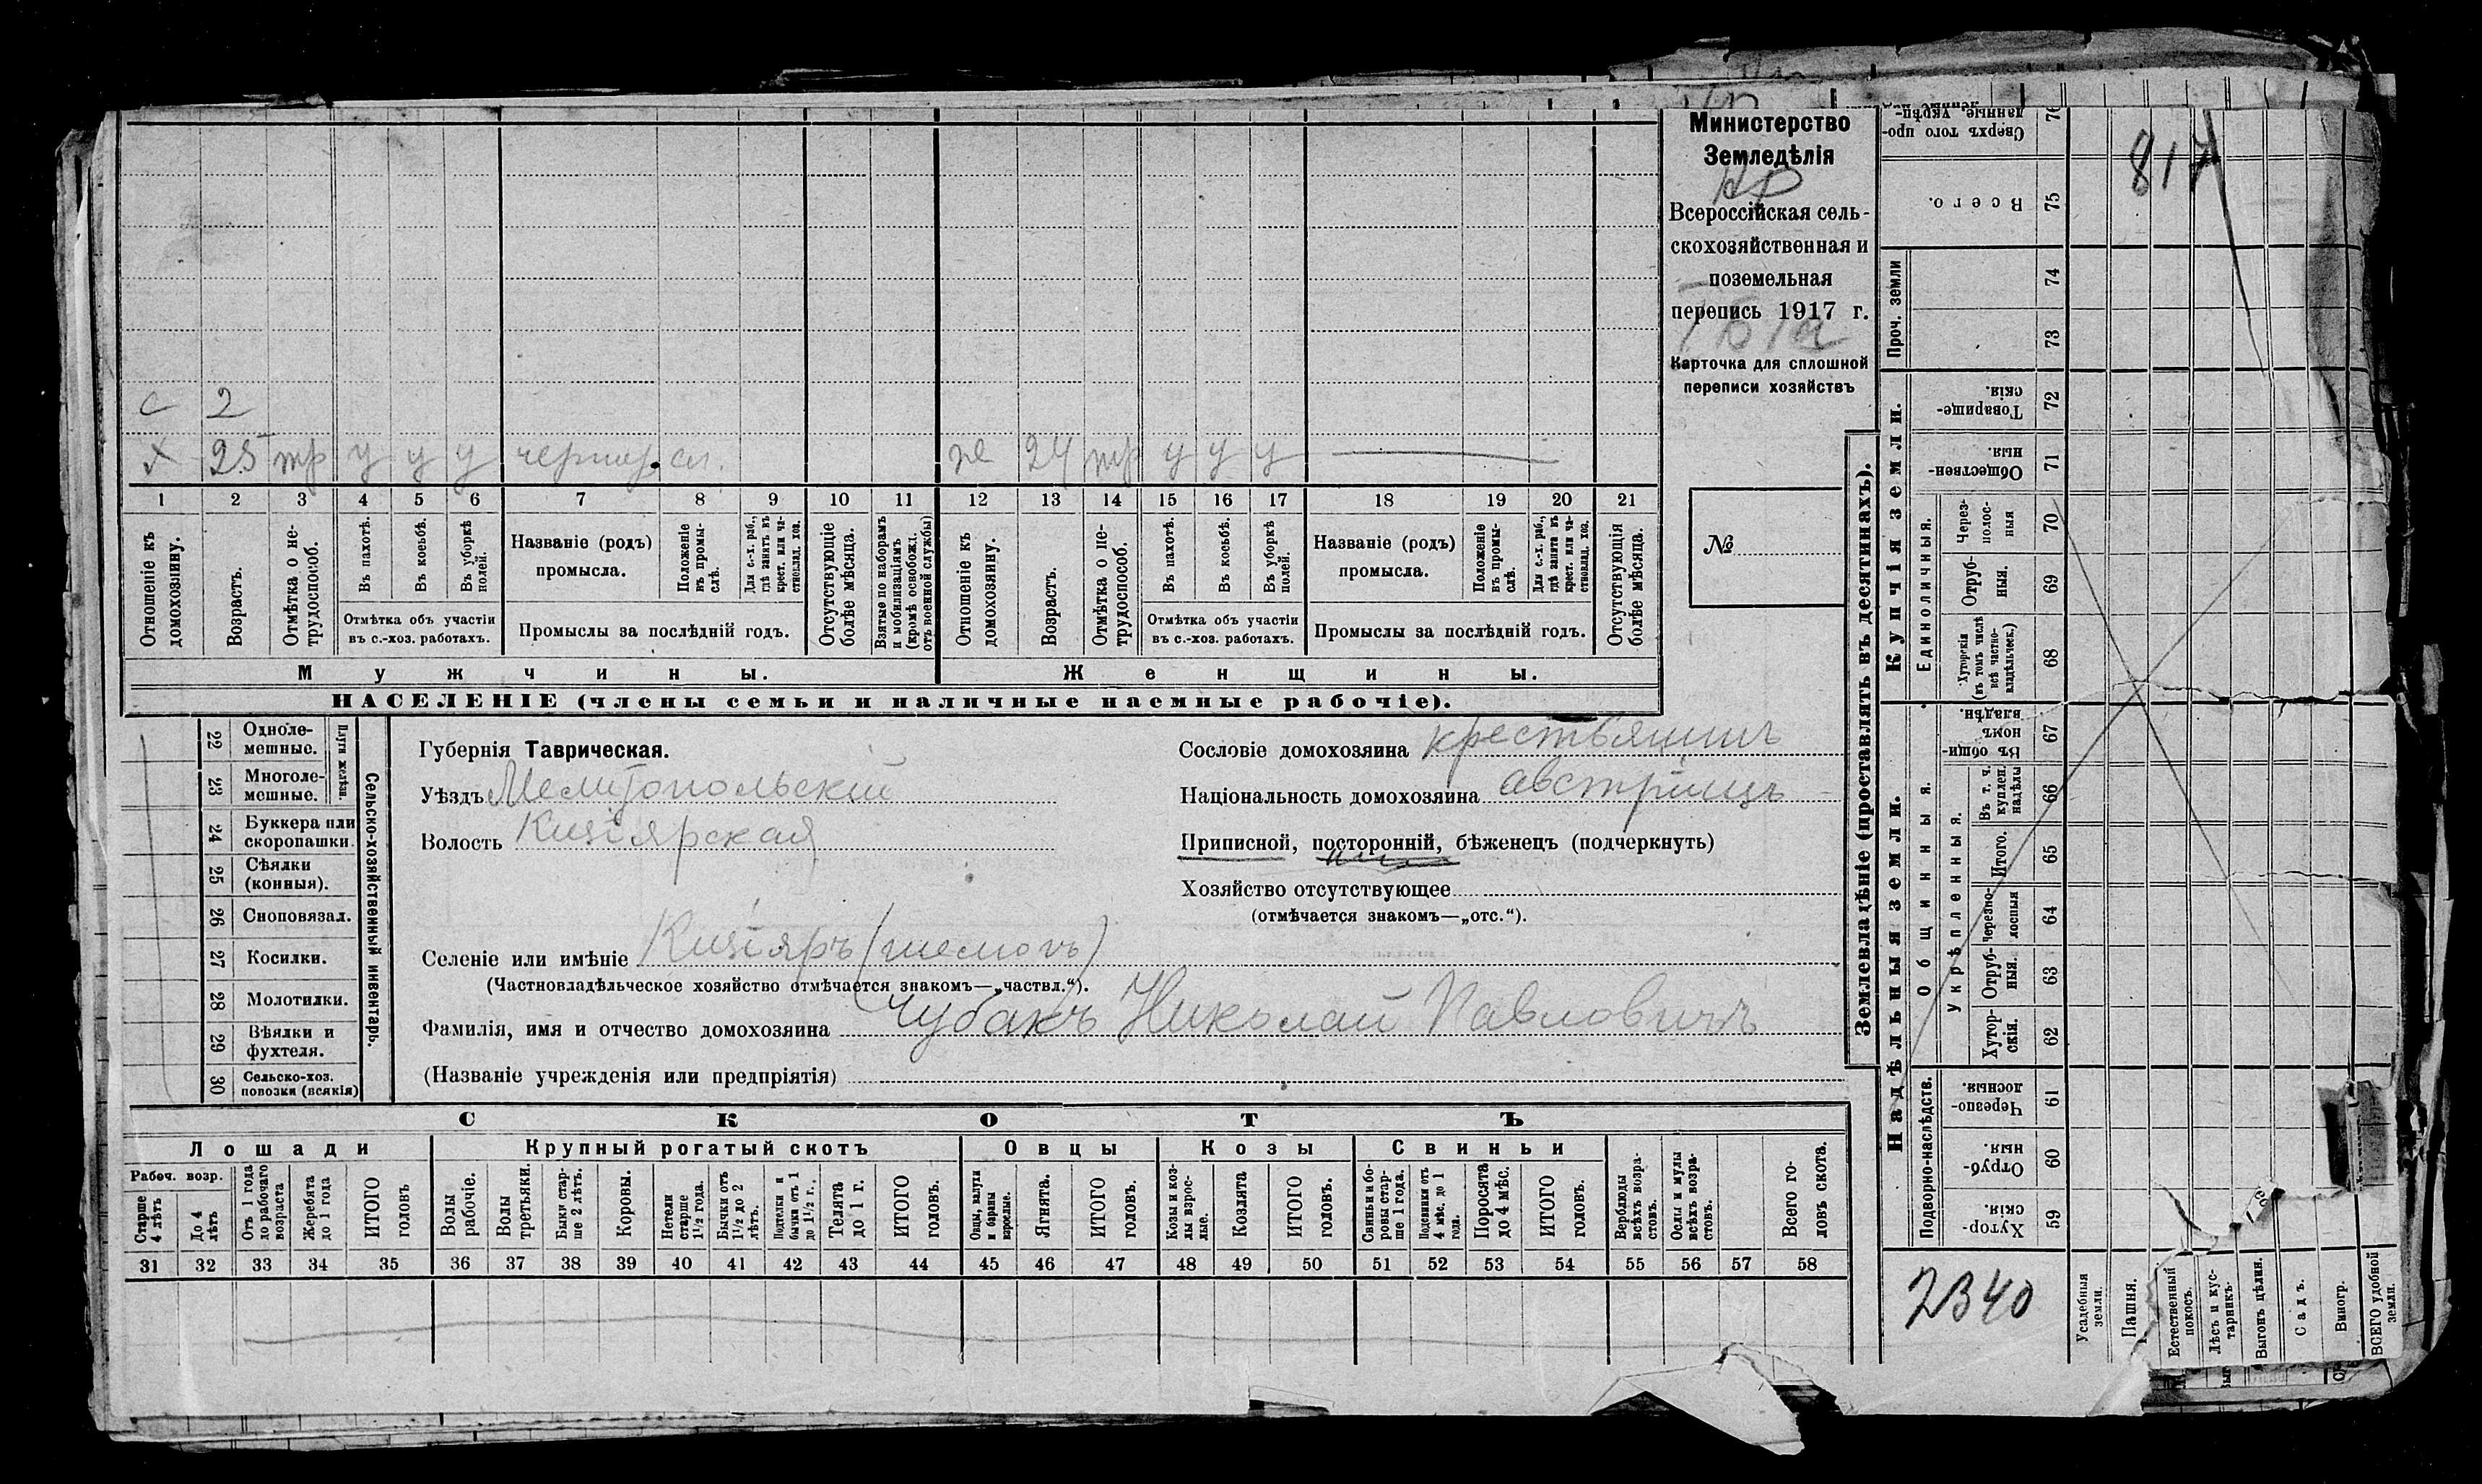 Министерство
Земледѣлія
Всероссійская сель-
скохозяйственная и
поземельная
перепись 1917 г.
Карточка для сплошной
переписи хозяйствъ
№
817
с 2
х 25 тр у у у чернор. сл.
ж 24 тр у у у
1 2 3 4 5 6 7 8 9 10 11 12 13 14 15 16 17 18 19 20 21
Отношеніе къ домохозяину.
Возрастъ.
Отмѣтка о не-трудоспособ.
Въ пахотѣ.
Въ косьбѣ.
Въ уборкѣ полей.
Отмѣтка объ участіи
въ с.-хоз. работахъ.
Названіе (родъ)
промысла.
Положеніе въ промы-слѣ.
Для с.-х. раб., гдѣ занятъ въ крест. или ча-стновлад. хоз.
Промыслы за послѣдній годъ.
Отсутствующіе болѣе мѣсяца.
Взятые по наборамъ и мобилизаціямъ (кромѣ освобожд. отъ военной службы)
Отношеніе къ домохозяину.
Возрастъ.
Отмѣтка о не-трудоспособ.
Въ пахотѣ.
Въ косьбѣ.
Въ уборкѣ полей.
Отмѣтка объ участіи
въ с.-хоз. работахъ.
Названіе (родъ)
промысла.
Положеніе въ промы-слѣ.
Для с.-х. раб., гдѣ занята въ крест. или ча-стновлад. хоз.
Промыслы за послѣдній годъ.
Отсутствующія болѣе мѣсяца.
Мужчины.
Женщины.
НАСЕЛЕНІЕ (члены семьи и наличные наемные рабочіе).
22 Одноле-мешные.
23 Многоле-мешные.
Плуги желѣзн.
24 Буккера или скоропашки.
25 Сѣялки (конныя).
26 Сноповязал.
27 Косилки.
28 Молотилки.
29 Вѣялки и фухтеля.
30 Сельско-хоз. повозки (всякія)
Сельско-хозяйственный инвентарь.
Губернія Таврическая.
Уѣздъ Мелитопольскій
Волость Кизіярская
Сословіе домохозяина крестьянинъ
Національность домохозяина австріецъ
Приписной, посторонній, бѣженецъ (подчеркнуть)
Хозяйство отсутствующее
(отмѣчается знакомъ—„отс.“).
Селеніе или имѣніе Кизіяръ
(Частновладѣльческое хозяйство отмѣчается знакомъ—„частвл.“).
Фамилія, имя и отчество домохозяина Чубакъ Николай Павловичъ
(Названіе учрежденія или предпріятія)
СКОТЪ
Лошади
Крупный рогатый скотъ
Овцы
Козы
Свиньи
Рабоч. возр.
Старше 4 лѣтъ
До 4 лѣтъ
Отъ 1 года до рабочаго возраста
Жеребята до 1 года
ИТОГО головъ
Волы рабочіе.
Волы третьяки.
Быки стар-ше 2 лѣтъ.
Коровы.
Нетели старше 1½ года.
Бычки отъ 1½ до 2 лѣтъ.
Подтелки и бычки отъ 1 до 1½ г.
Телята до 1 г.
ИТОГО головъ.
Овцы, валухи и бараны взрослые.
Ягнята.
ИТОГО головъ.
Козы и коз-лы взрос-лые.
Козлята
ИТОГО головъ.
Свиньи и бо-ровы стар-ше 1 года.
Подсвинки отъ 4 мѣс. до 1 года.
Поросята до 4 мѣс.
ИТОГО головъ.
Верблюды всѣхъ возра-стовъ.
Ослы и мулы всѣхъ возра-стовъ.
Всего го-ловъ скота.
31 32 33 34 35 36 37 38 39 40 41 42 43 44 45 46 47 48 49 50 51 52 53 54 55 56 57 58
Землевладѣніе (проставлять въ десятинахъ).
Надѣльныя земли.
Купчія земли.
Проч. земли
Подворно-наслѣдств.
Общинныя.
Укрѣпленныя.
Единоличныя.
Сверхъ того про-данные, укрѣп-
76
Всего. 75
74
73
Товарище-скія. 72
Обществен-ныя. 71
Через-полос-ныя 70
Отруб-ныя. 69
Хуторскія (въ томъ числѣ всѣ частно-владѣльческ.) 68
Въ общин-номъ владѣн. 67
Въ т. ч. куплен. надѣлы 66
Итого. 65
Черезпо-лосныя 64
Отруб-ныя. 63
Хутор-скія. 62
Черезпо-лосныя. 61
Отруб-ныя. 60
Хутор-скія. 59
2340
Усадебныя земли.
Пашня.
Естественный покосъ.
Лѣсъ и кус-тарникъ.
Выгонъ цѣлин.
Садъ.
Виногр.
ВСЕГО удобной земли.